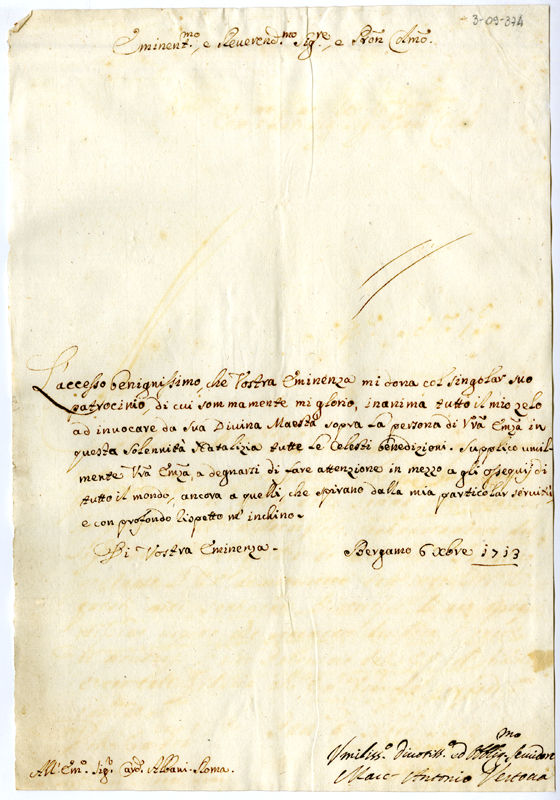 3-09-374
Eminent.mo, e Reverend.mo Sig.re, e Pron Colmo.
L'accesso benignissimo, che Vostra Eminenza mi dona col singolar suo
patrocinio, di cui sommamente mi glorio, inanima tutto il mio zelo
ad invocare da Sua Divina Maestà sopra la persona di Vra Emza in
questa Solennità Natalizia tutte le Celesti benedizioni. Supplico umil-
mente Vra Emza, a degnarsi di fare attenzione in mezzo a gli osseguij di
tutto il mondo, ancora a quelli, che spirano dalla mia particolar servitù,
e con profondo rispetto m'inchino.
Di Vostra Eminenza.
Bergamo 6 Xbre 1713
Umiliss.o Divotiss.o ed Obbl.mo Servidore
Marc' Antonio
All' Em.o Sig.r Card. Albani. Roma.